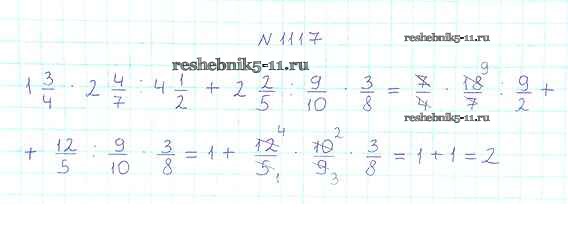 N 1117
reshebnik5-11.ru
reshebnik5-11.ru
1 3/4 · 2 4/7 : 4 1/2 + 2 2/5 : 9/10 · 3/8 = 7/4 · 18/7 9 : 9/2 +
reshebnik5-11.ru
+ 12/5 : 9/10 · 3/8 = 1 + 12/5 4 1 · 10/9 2 3 · 3/8 = 1 + 1 = 2